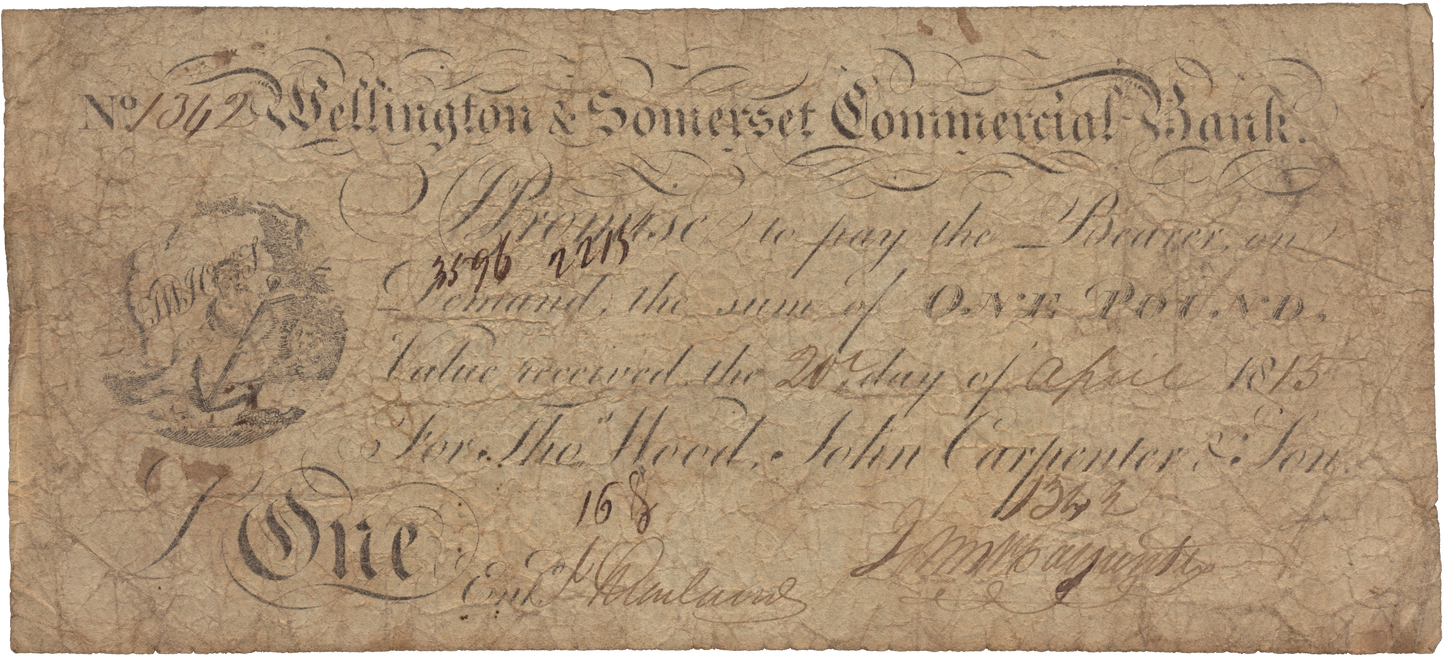 No 1342 Wellington & Somerset Commercial Bank.
I Promise to pay the Bearer, on
3596 2215
Demand, the sum of ONE POUND.
Value received the 20th day of April 1815
For Thos. Wood, John Carpenter & Son.
168 1342
One
Entd